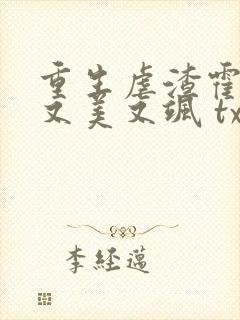 重生虐渣霍
又美又飒 tx
李经迈